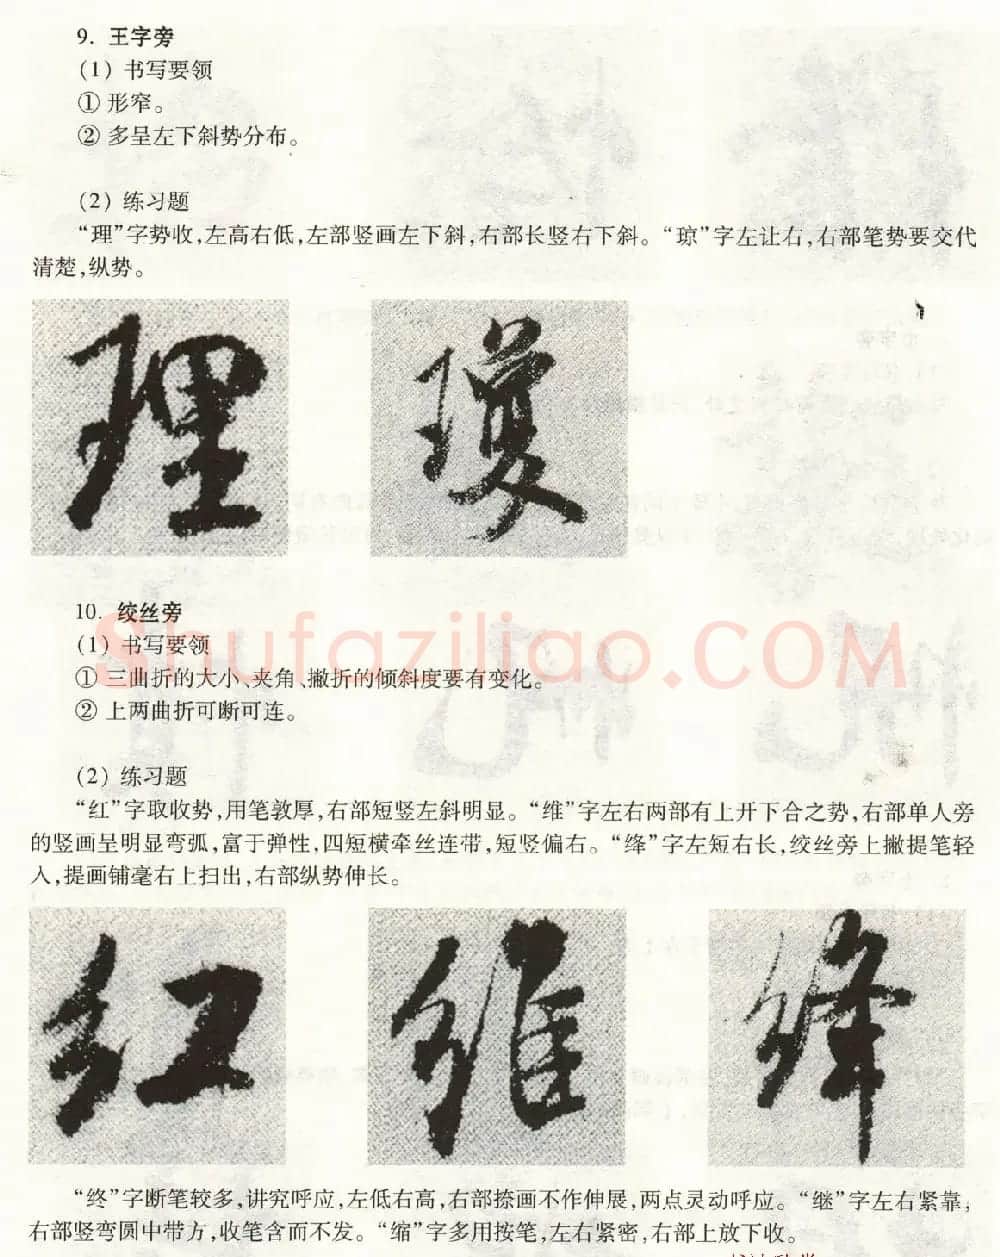 9. 王字旁
(1) 书写要领
① 形窄。
② 多呈左下斜势分布。
(2) 练习题
“理”字势收,左高右低,左部竖画左下斜,右部长竖右下斜。“琼”字左让右,右部笔势要交代
清楚,纵势。
理 瓊
10. 绞丝旁
(1) 书写要领
① 三曲折的大小、夹角、撇折的倾斜度要有变化。
② 上两曲折可断可连。
Shufaziliao.COM
(2) 练习题
“红”字取收势,用笔敦厚,右部短竖左斜明显。“维”字左右两部有上开下合之势,右部单人旁
的竖画呈明显弯弧,富于弹性,四短横牵丝连带,短竖偏右。“绛”字左短右长,绞丝旁上撇提笔轻
入,提画铺毫右上扫出,右部纵势伸长。
红 维 绛
“终”字断笔较多,讲究呼应,左低右高,右部捺画不作伸展,两点灵动呼应。“继”字左右紧靠,
右部竖弯圆中带方,收笔含而不发。“缩”字多用按笔,左右紧密,右部上放下收。